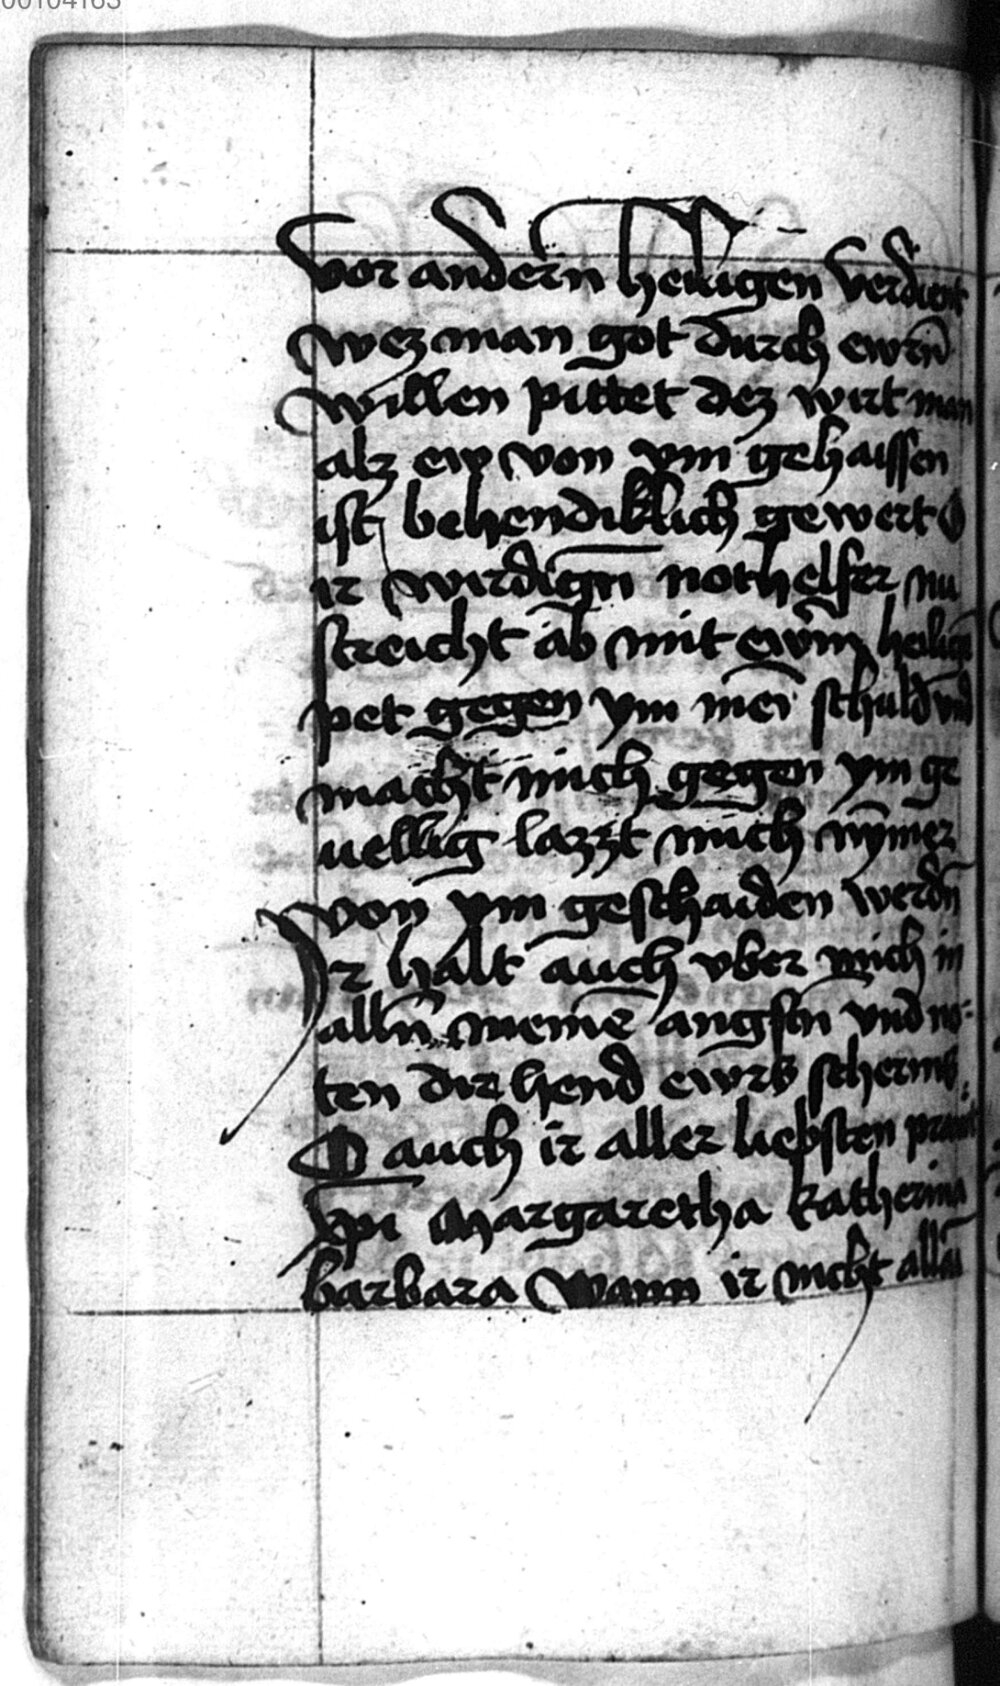 00104163
vor andern heiligen verdient
wez man got durch ewrn̄
willen pittet dez wirt man
alz ew von ym gehaissen
ist behendiklich gewert O
ir wirdign̄ nothelfer nu
streicht ab mit ewrm̄ heilign̄
pet gegen ym mei̅ schuld vnd
macht mich gegen ym ge
uellig lazzt mich nȳmer
von ym geschaiden werdn̄
Ir halt auch vber mich in
alln̄ meinē angstn̄ vnd no-
ten die hend ewrs scherms
O auch ir aller liebsten prawt
xp̄i Margaretha katherina
barbara Wann ir nicht allai̅